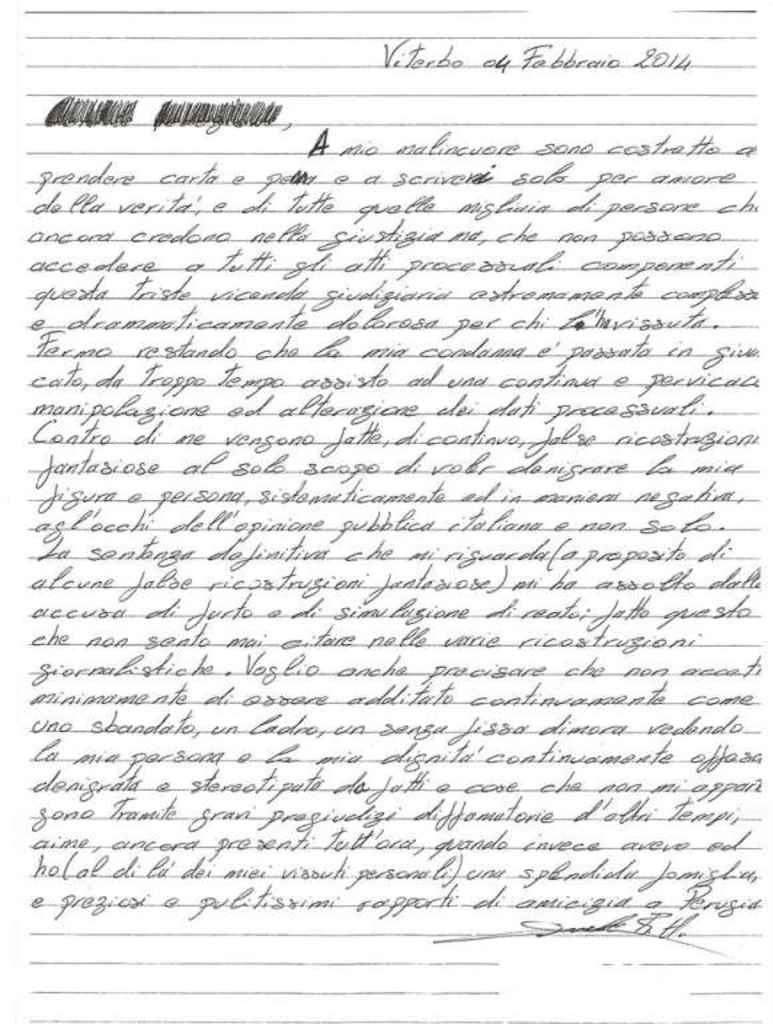 Viterbo 04 Febbraio 2014
A mio malincuore sono costretto a
prendere carta e penna e a scrivervi solo per amore
della verità, e di tutte quelle migliaia di persone ch
ancora credono nella giustizia ma, che non possono
accedere a tutti gli atti processuali componenti
questa triste vicenda giudiziaria estremamente compless
e drammaticamente dolorosa per chi l'ha vissuta.
Fermo restando che la mia condanna e' passata in giu
cato, da troppo tempo assisto ad una continua e pervicac
manipolazione ed alterazione dei dati processuali.
Contro di me vengono fatte, di continuo, false ricostruzioni
fantasiose al solo scopo di voler denigrare la mia
figura e persona, sistematicamente ed in maniera negativa,
agl'occhi dell'opinione pubblica italiana e non solo.
La sentenza definitiva che mi riguarda (a proposito di
alcune false ricostruzioni fantasiose) mi ha assolto dalle
accusa di furto e di simulazione di reato; fatto questo
che non sento mai citare nelle varie ricostruzioni
giornalistiche. Voglio anche precisare che non accett
minimamente di essere additato continuamente come
uno sbandato, un ladro, un senza fissa dimora vedendo
la mia persona e la mia dignità continuamente offesa
denigrata e stereotipata da fatti e cose che non mi appart
gono tramite gravi pregiudizi diffamatorie d'altri tempi,
aime, ancora presenti tutt'ora, quando invece avevo ed
ho (al di là dei miei vissuti personali) una splendida famiglia,
e preziosi e pulitissimi rapporti di amicizia a Perugia